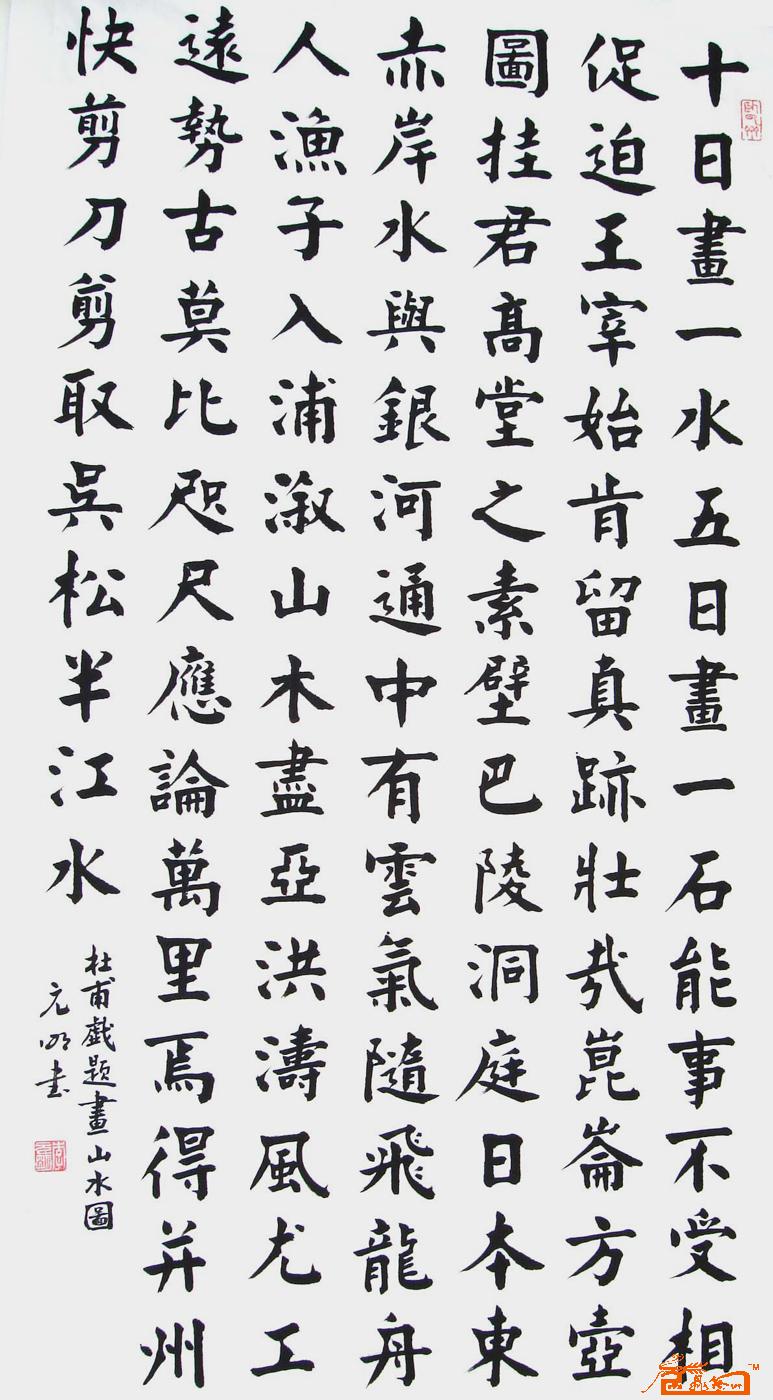 十日畫一水五日畫一石能事不受相
促迫王宰始肯留真跡壯哉崑崙方壺
圖挂君高堂之素壁巴陵洞庭日本東
赤岸水與銀河通中有雲氣隨飛龍舟
人漁子入浦溆山木盡亞洪濤風尤工
遠勢古莫比咫尺應論萬里焉得并州
快剪刀剪取吳松半江水
杜甫戲題畫山水圖
元明書